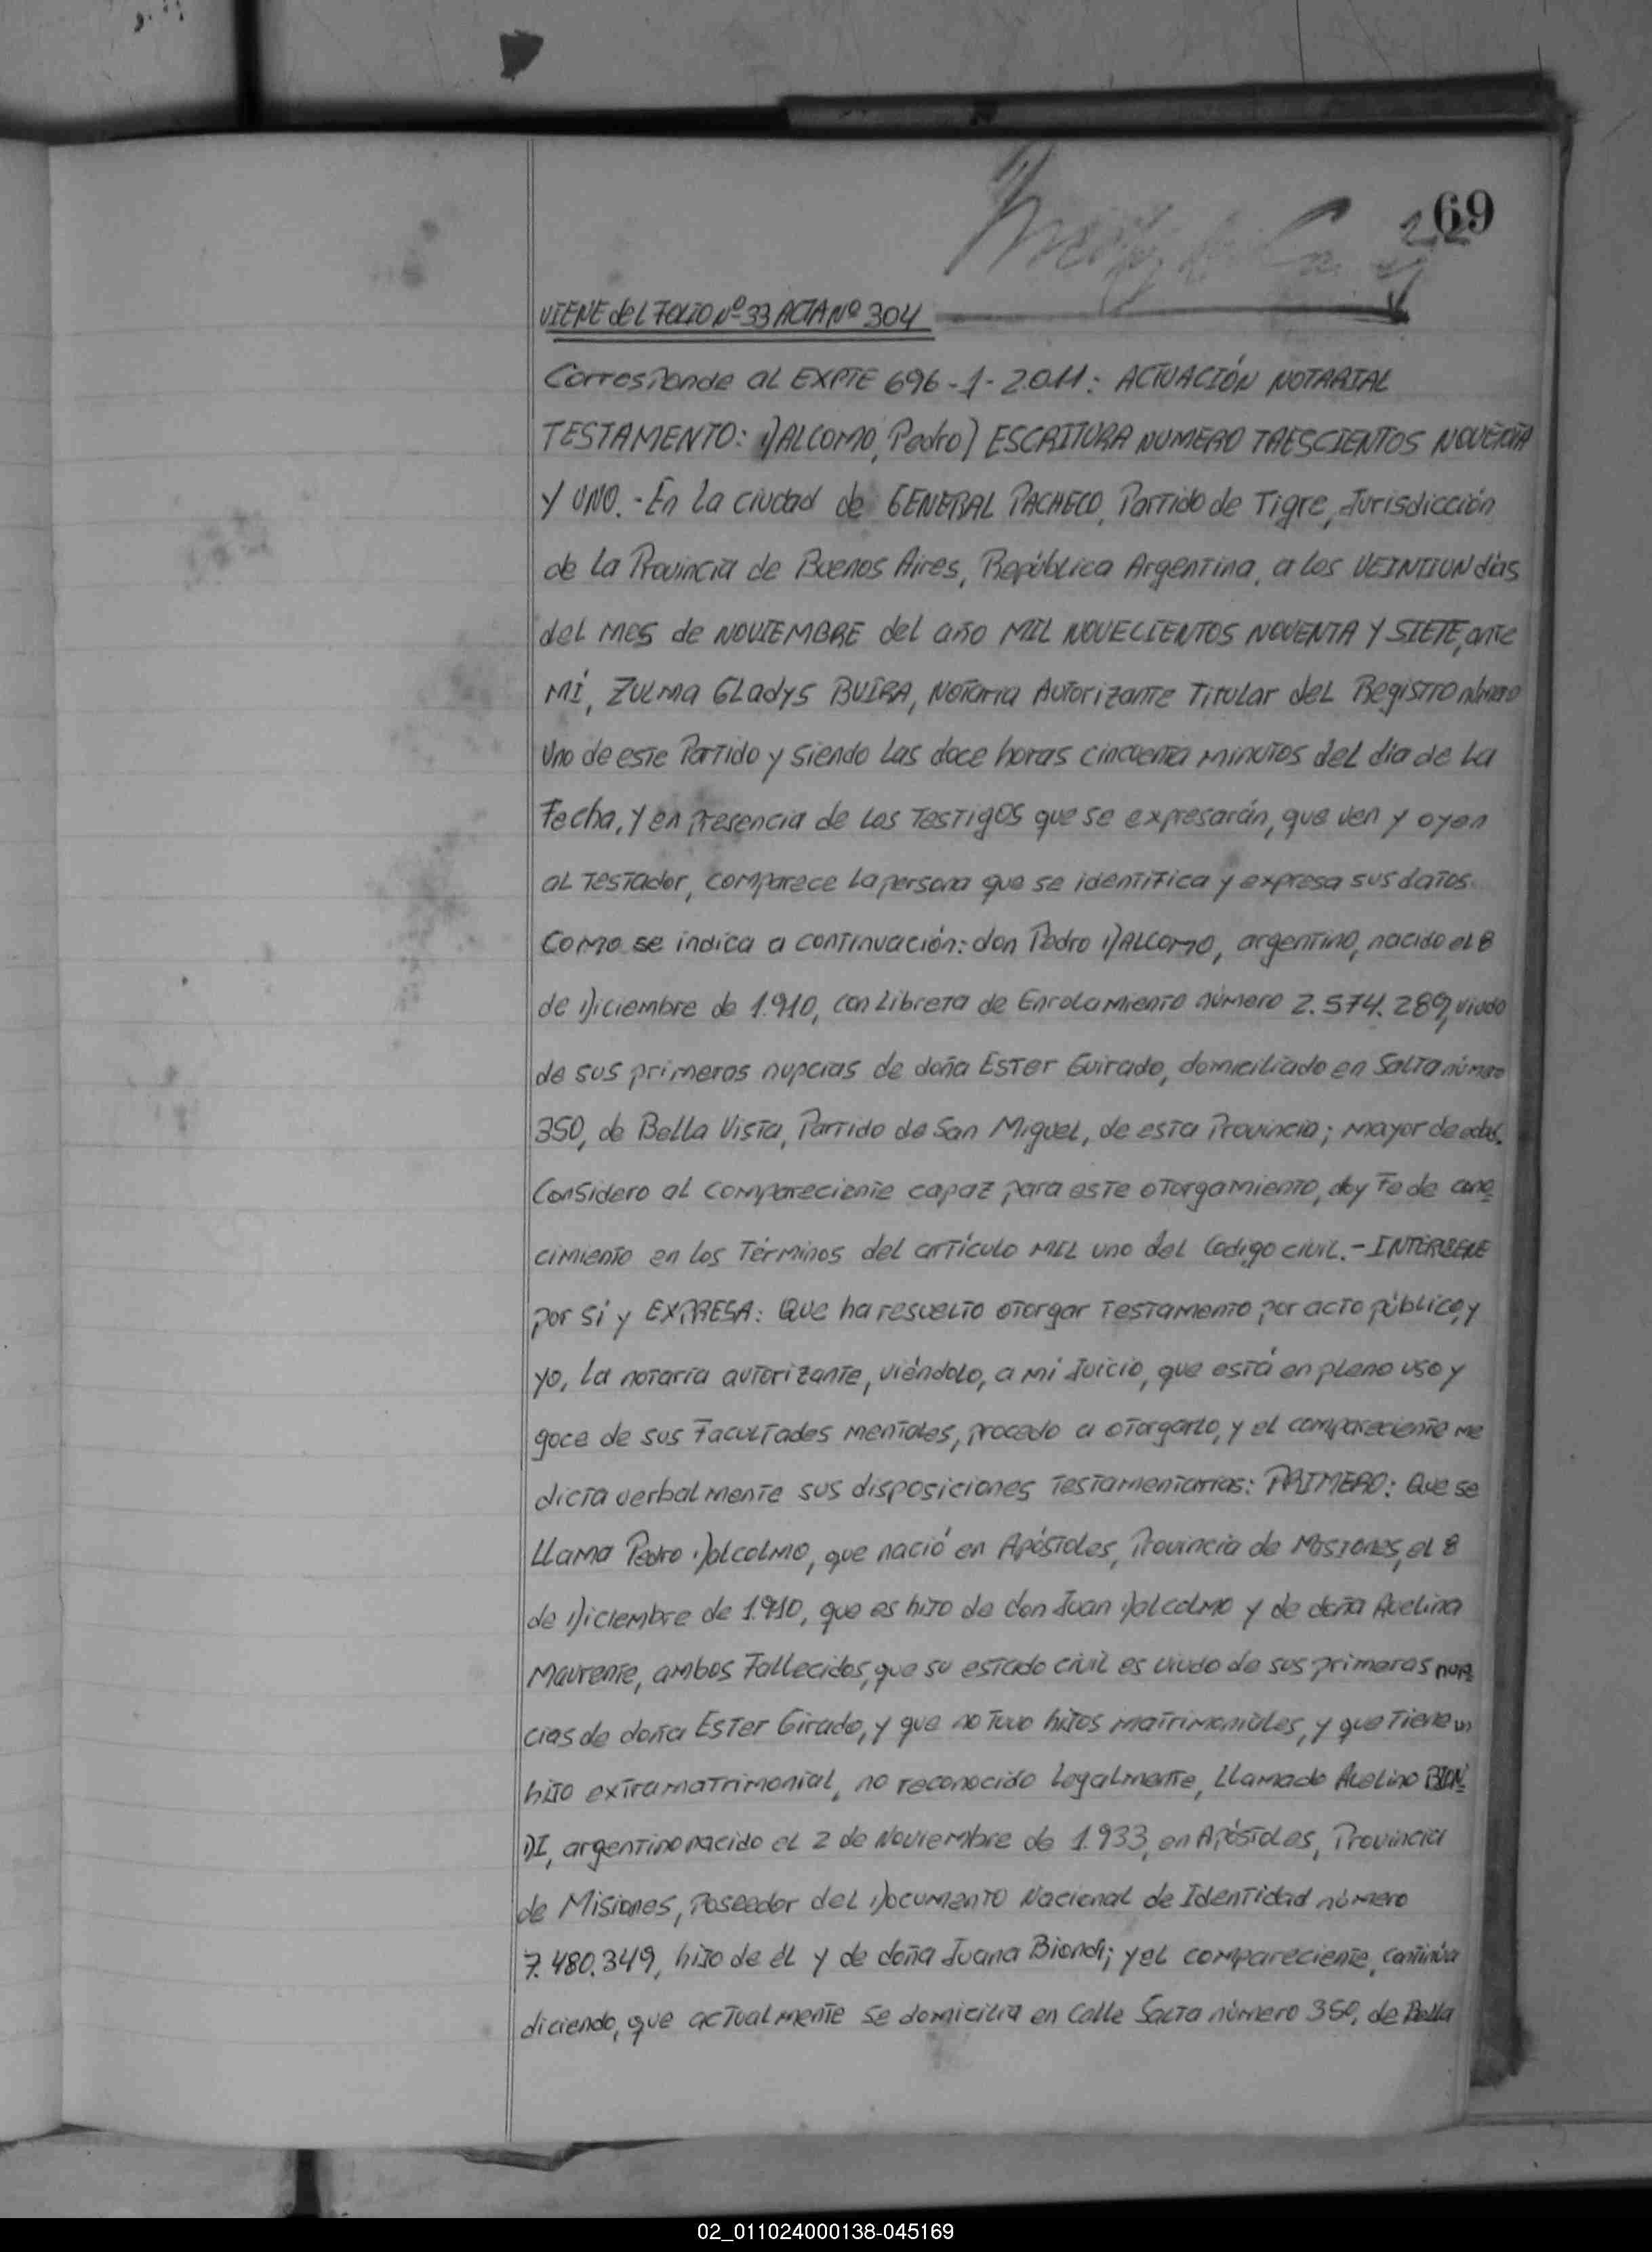 69
VIENE del FOLIO Nº 33 ACTA Nº 304
Corresponde al EXPTE 696-1-2.011: ACTUACIÓN NOTARIAL
TESTAMENTO: DALCOMO, Pedro) ESCRITURA NUMERO TRESCIENTOS NOVENTA
Y UNO.- En la ciudad de GENERAL PACHECO, Partido de Tigre, Jurisdicción
de la Provincia de Buenos Aires, República Argentina, a los VEINTIUN días
del mes de NOVIEMBRE del año MIL NOVECIENTOS NOVENTA Y SIETE, ante
mí, Zulma Gladys BUIRA, Notaria Autorizante Titular del Registro número
Uno de este Partido y siendo las doce horas cincuenta minutos del día de la
Fecha, y en presencia de los Testigos que se expresarán, que ven y oyen
al Testador, comparece la persona que se identifica y expresa sus datos
Como se indica a continuación: don Pedro DALCOMO, argentino, nacido el 8
de Diciembre de 1.910, con Libreta de Enrolamiento número 2.574.289, viudo
de sus primeras nupcias de doña Ester Guirado, domiciliado en Salta número
350, de Bella Vista, Partido de San Miguel, de esta Provincia; mayor de edad.
Considero al compareciente capaz para este otorgamiento, doy Fe de cono
cimiento en los Términos del artículo mil uno del Codigo civil.- INTERVIENE
por sí y EXPRESA: Que ha resuelto otorgar Testamento por acto público, y
yo, la notaria autorizante, viéndolo, a mi Juicio, que está en pleno uso y
goce de sus Facultades mentales, procedo a otorgarlo, y el compareciente me
dicta verbalmente sus disposiciones Testamentarias: PRIMERO: Que se
Llama Pedro Dalcolmo, que nació en Apóstoles, Provincia de Misiones, el 8
de Diciembre de 1.910, que es hijo de don Juan Dalcolmo y de doña Avelina
Maurente, ambos Fallecidos, que su estado civil es viudo de sus primeras nup
cias de doña Ester Girado, y que no tuvo hijos matrimoniales, y que Tiene un
hijo extramatrimonial, no reconocido legalmente, Llamado Avelino BION
DI, argentino nacido el 2 de Noviembre de 1.933, en Apóstoles, Provincia
de Misiones, Poseedor del Documento Nacional de Identidad número
7.480.349, hijo de él y de doña Juana Biondi; y el compareciente, continúa
diciendo, que actualmente se domicilia en Calle Salta número 350, de Bella
02_011024000138-045169